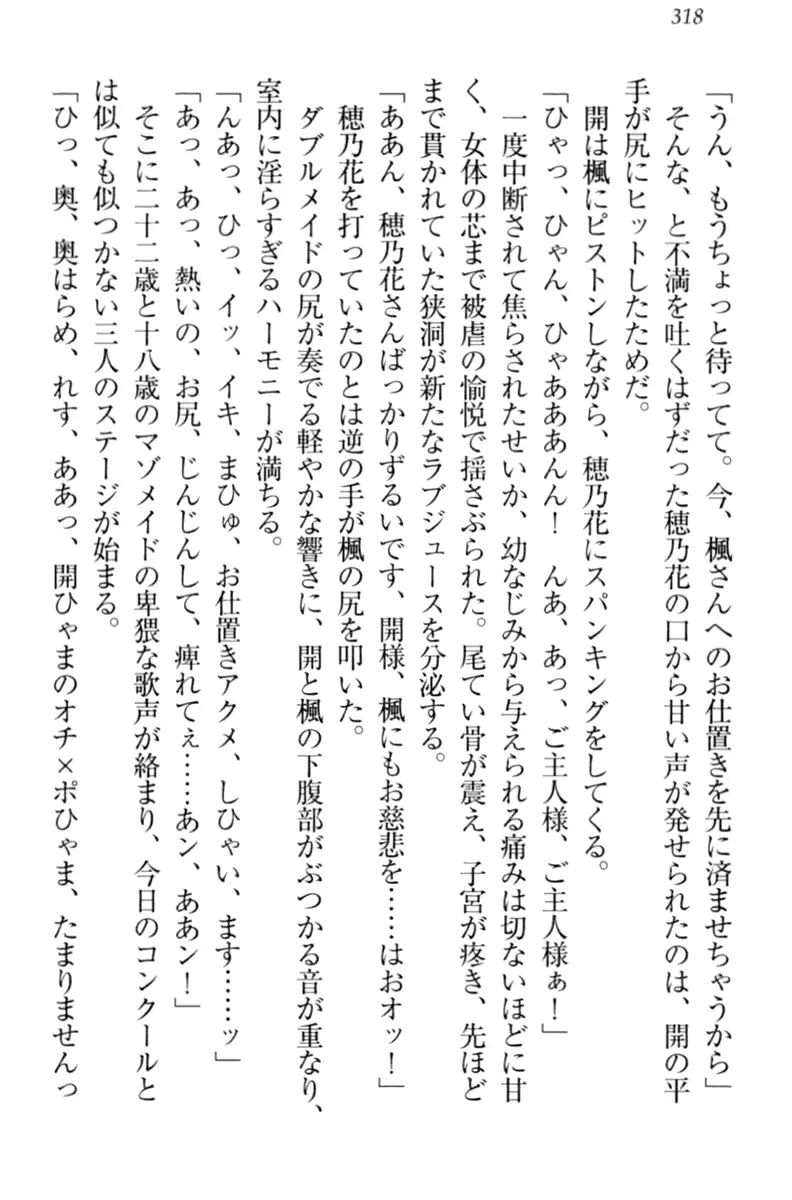 318
「うん、もうちょっと待ってて。今、楓さんへのお仕置きを先に済ませちゃうから」
　そんな、と不満を吐くはずだった穂乃花の口から甘い声が発せられたのは、開の平
手が尻にヒットしたためだ。
　開は楓にピストンしながら、穂乃花にスパンキングをしてくる。
「ひゃっ、ひゃん、ひゃあああんん！　んあ、あっ、ご主人様、ご主人様ぁ！」
　一度中断されて焦らされたせいか、幼なじみから与えられる痛みは切ないほどに甘
く、女体の芯まで被虐の愉悦で揺さぶられた。尾てい骨が震え、子宮が疼き、先ほど
まで貫かれていた狭洞が新たなラブジュースを分泌する。
「ああん、穂乃花さんばっかりずるいです、開様、楓にもお慈悲を……はおオッ！」
　穂乃花を打っていたのとは逆の手が楓の尻を叩いた。
　ダブルメイドの尻が奏でる軽やかな響きに、開と楓の下腹部がぶつかる音が重なり、
室内に淫らすぎるハーモニーが満ちる。
「んあっ、ひっ、イッ、イキ、まひゅ、お仕置きアクメ、しひゃい、ます……ッ」
「あっ、あっ、熱いの、お尻、じんじんして、痺れてぇ……あン、ああン！」
　そこに二十二歳と十八歳のマゾメイドの卑猥な歌声が絡まり、今日のコンクールと
は似ても似つかない三人のステージが始まる。
「ひっ、奥、奥はらめ、れす、ああっ、開ひゃまのオチ×ポひゃま、たまりませんっ